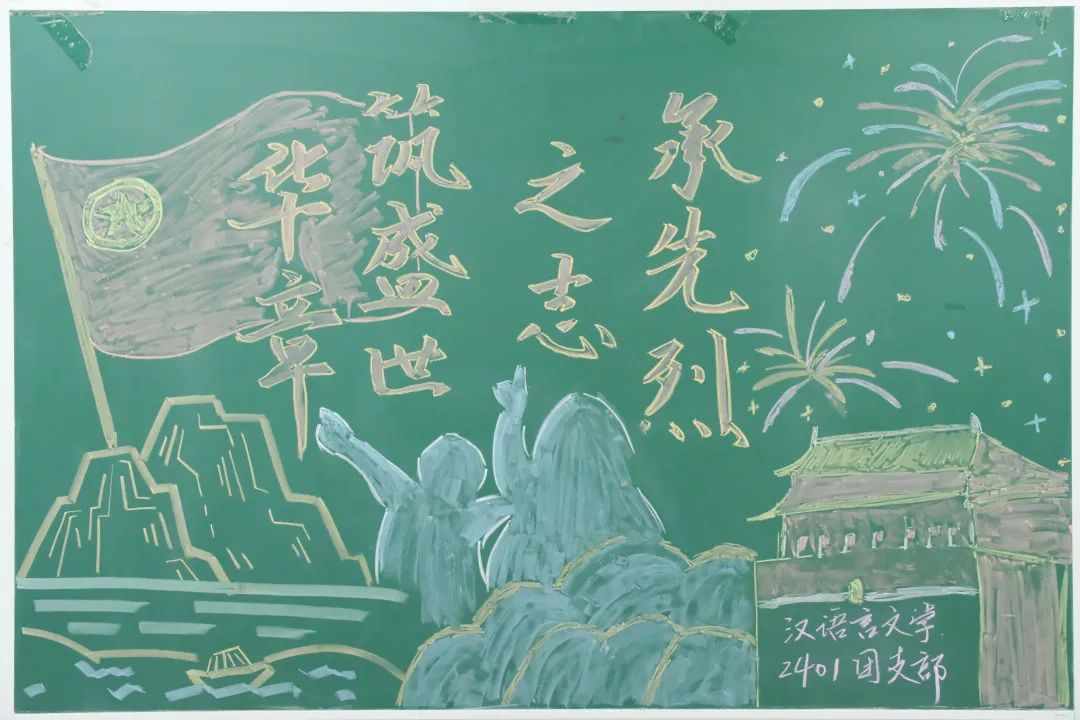 承先烈
之志
筑盛世
华章
汉语言文学
2401团支部